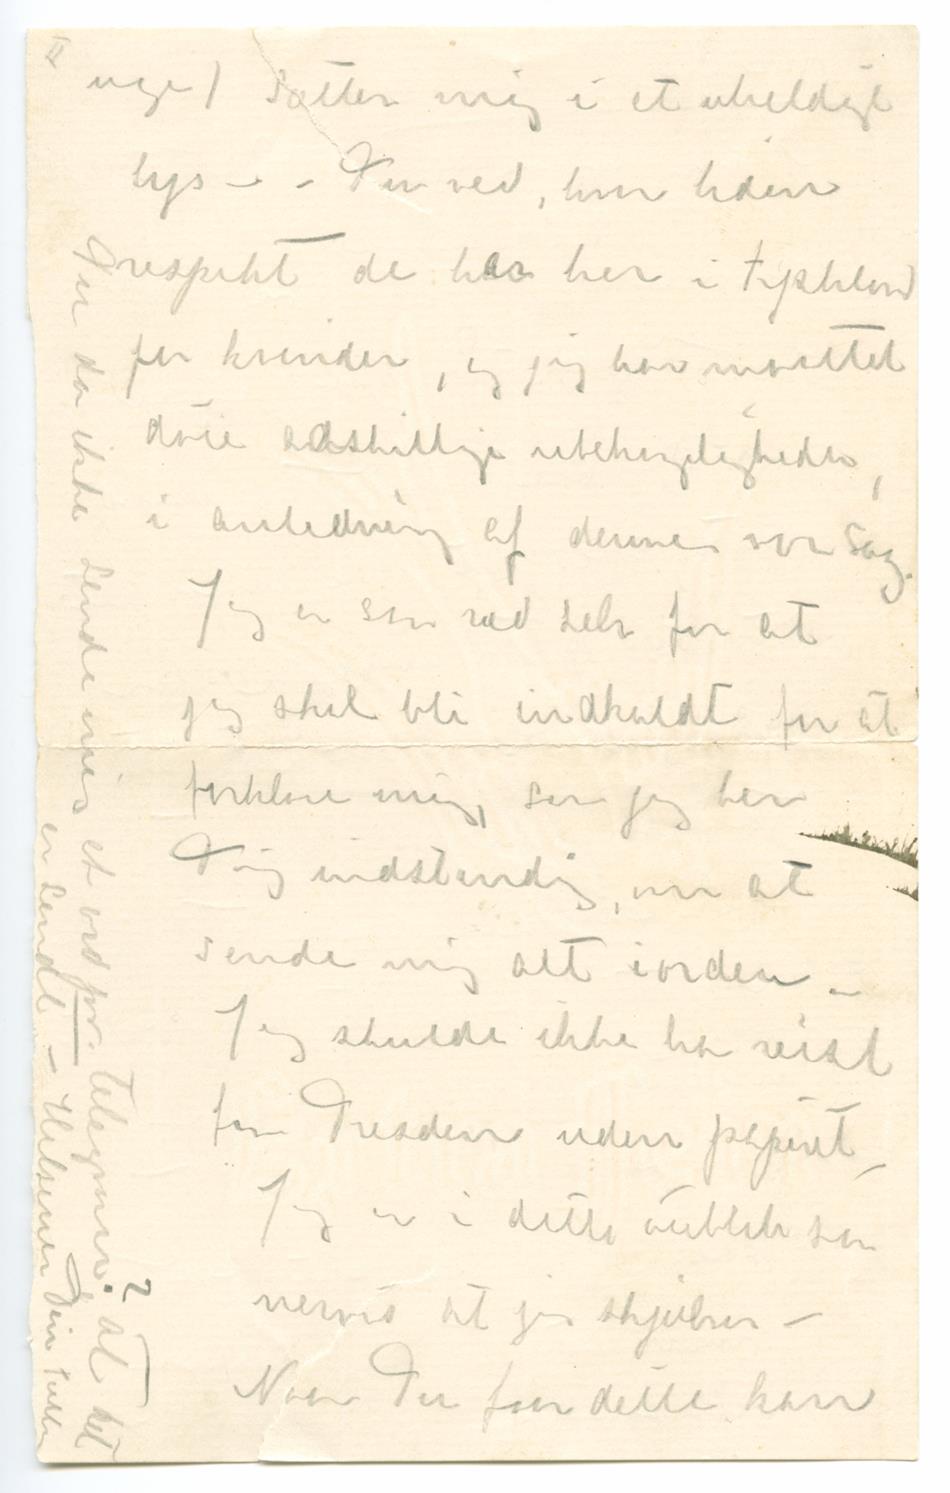 uge) sætter mig i et uheldigt
lys – – Du ved, hvor liden
respekt de har her i tyskland
for kvinder, og jeg har maattet
døie adskillige ubehageligheder,
i anledning af denne vor sag.
Jeg er saa ræd selv for at
jeg skal bli indkaldt for at
forklare mig, saa jeg ber
Dig indstændig, om at
sende mig alt iorden –
Jeg skulde ikke ha reist
fra Dresden uden papiret –
Jeg er i dette øieblik saa
nervøs at jeg skjælver –
Naar Du faar dette kan
Du da ikke sende mig et ord pr. telegram? at det
er sendt – Hilsener Din Tulla